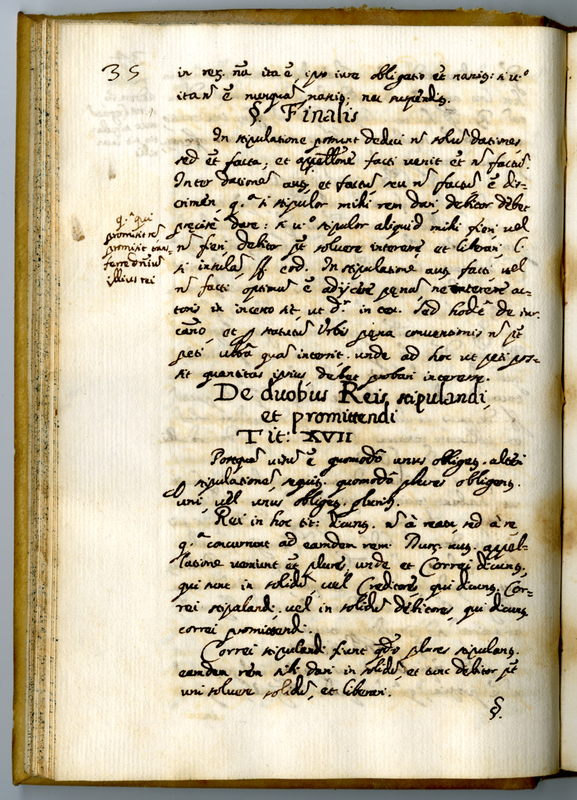 35
in res. nã ita ẽ, ipso iure obligatio et
ita ñ ẽ nunquã
§. Finalis
In stipulatione possunt deduci ñ solũ dationes
sed et facta; et facti venit et ñ
Inter datione aut, et factũ seu ñ factũ ẽ dis-
crimen q.ᵃ si stipulor mihi rem dari, debitor debet
precise dare: si v.º stipulor aliquid mihi fieri vel
ñ fieri debitor põt solvere interesse et liberari l.
si insulã ff eod. In stipulatione aut facti vel
ñ facti optimũ ẽ adijcere penã ne interesse ac-
toris in incerto sit, ut d.ʳ in tex. Sed hodie de iure
cano, et statutũ Urbis pena conventionis ñ põt
peti ultra quã interest, unde ad hoc ut peti pos-
sit quantitas ipsius debet probari interesse.
q.ᵃ qui
promisit
promisit trans-
ferre
illius rei
De duobus Reis stipulandi,
et promittendi
Tit: XVII
Postquã visũ ẽ quomodõ unus obliget. alteri
stipulatione, quomodõ plures obligent.
uni, vel unus obliget. pluribus.
Rei in hoc tit: dicunt. ñ à reatu, sed à re
q.ᵃ concurrunt ad eamdem rem. appel-
latione veniunt et plures, unde et Correi dicunt.
qui sunt in solidũ vel Creditores, qui dicunt. Cor-
rei stipulandi, vel in solidũ debitores, qui dicunt.
correi promittendi.
Correi stipulandi fiunt qdo plures stipulant.
eamdem rem sibi dari in solidũ, et tunc debitor põt
uni solvere solidũ, et liberari.
§.